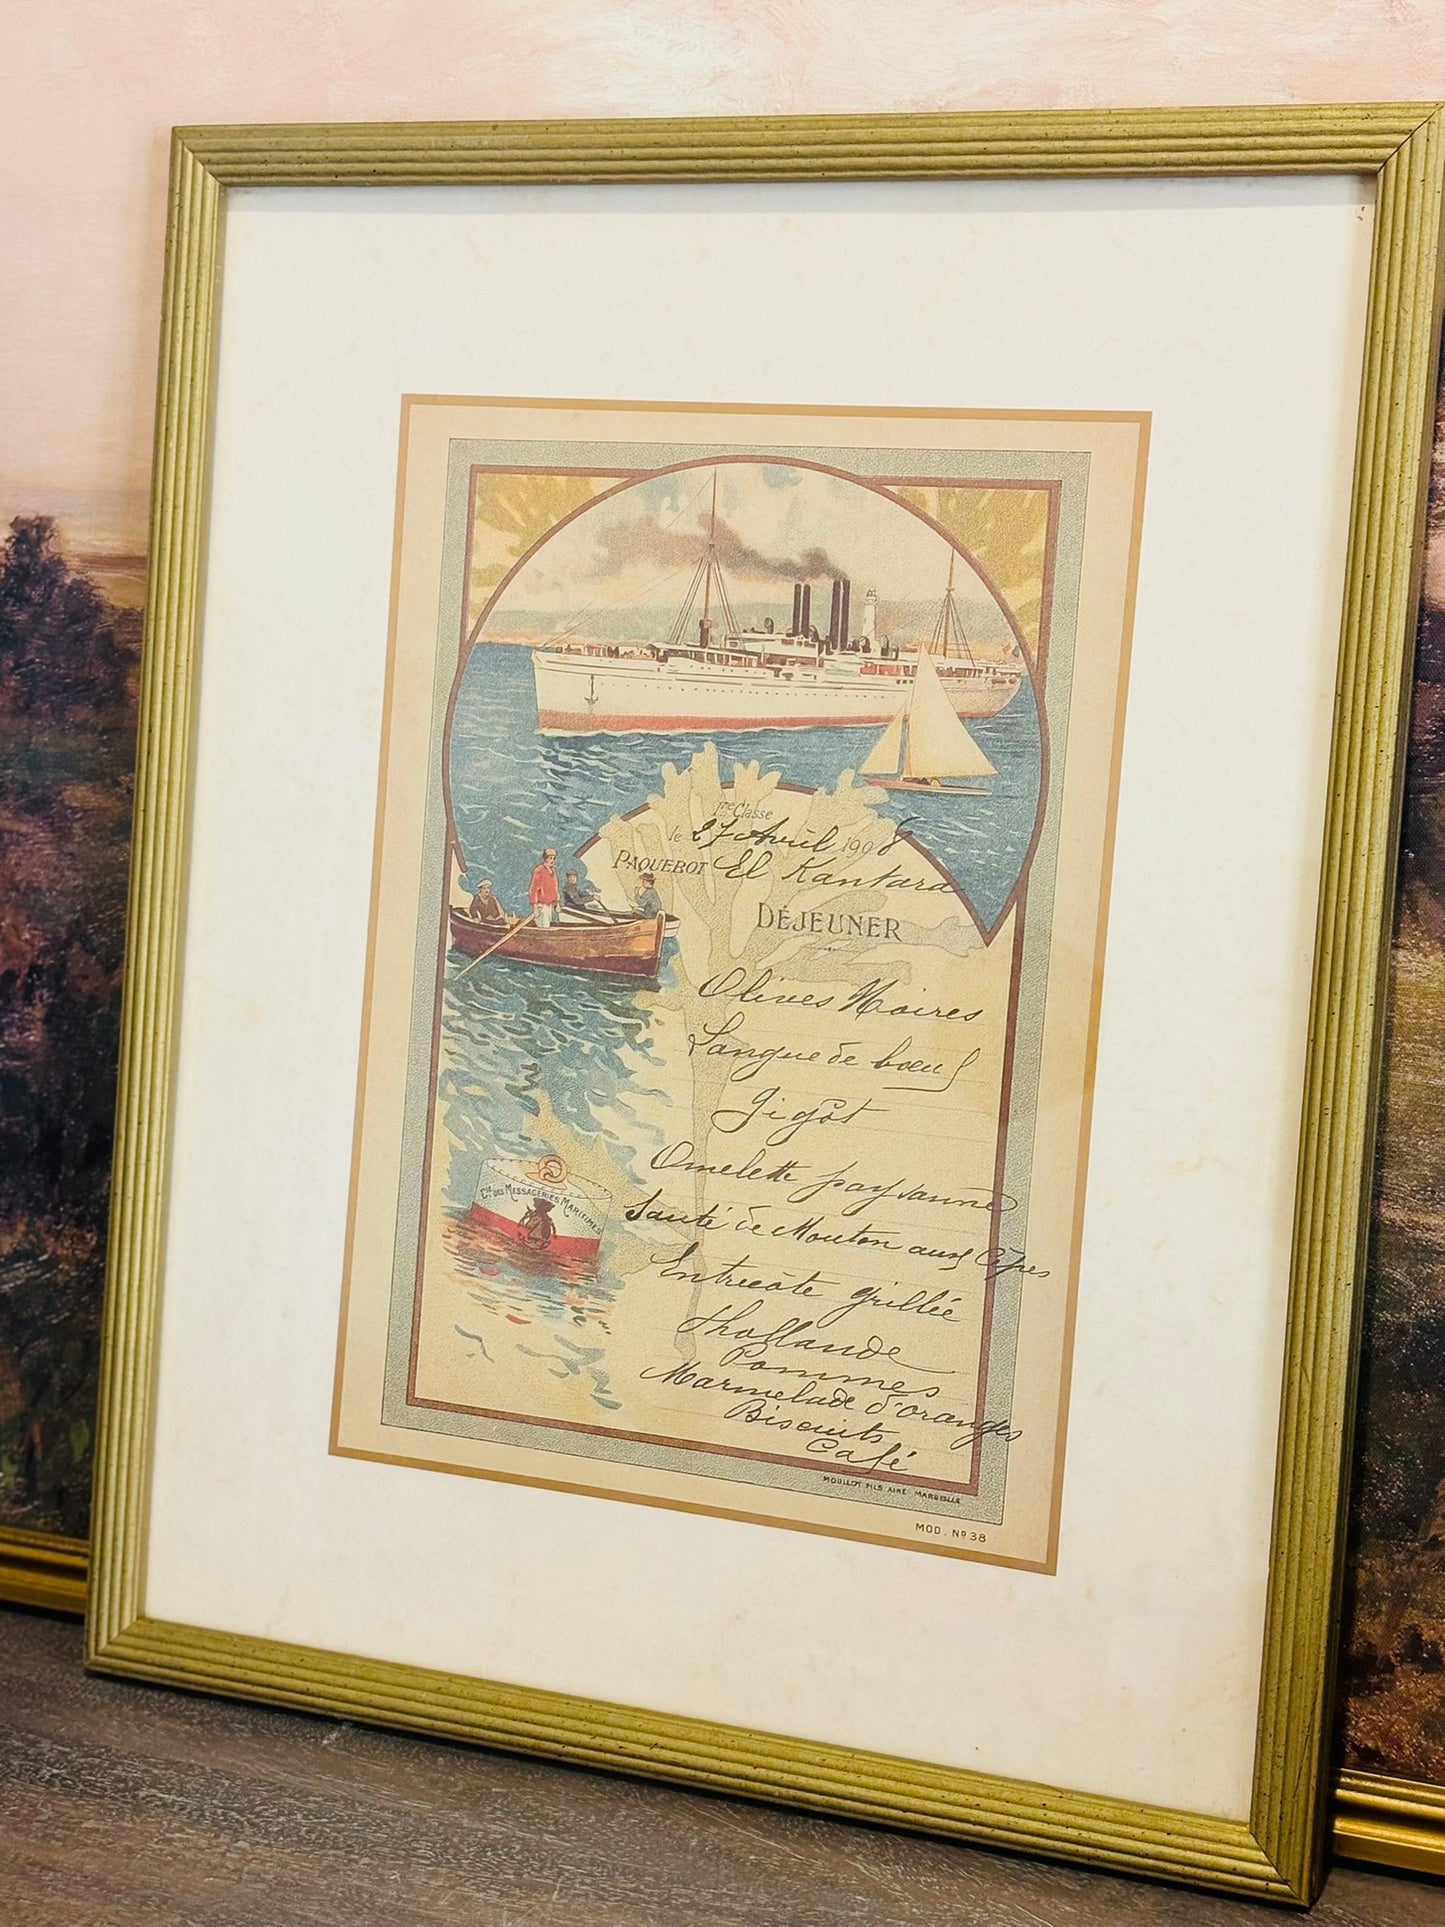 1re Classe
le 27 Avril 1908
PAQUEBOT El Kantara
DÉJEUNER
Olives Noires
Langue de bœuf
Gigôt
Omelette paysanne
Sauté de Mouton aux Cêpes
Entrecôte grillée
Hollande
Pommes
Marmelade d'oranges
Biscuits
Café
CIE DES MESSAGERIES MARITIMES
MOULLOT FILS AINÉ MARSEILLE
MOD. No 38